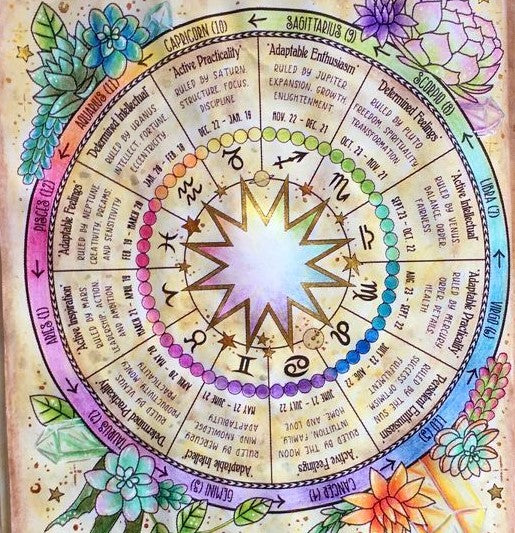 SAGITTARIUS (9)
'Adaptable Enthusiasm'
RULED BY JUPITER
EXPANSION, GROWTH,
ENLIGHTENMENT.
NOV. 22 - DEC 21
SCORPIO (8)
'Determined Feelings'
RULED BY PLUTO
FREEDOM, SPIRITUALITY
TRANSFORMATION
OCT. 23 - NOV. 21
LIBRA (7)
'Active Intellectual'
RULED BY VENUS
BALANCE, ORDER
FAIRNESS
SEPT. 23 - OCT. 22
VIRGO (6)
'Adaptable Practicality'
RULED BY MERCURY
ORDER, DETAILS,
HEALTH
AUG 23 - SEPT. 22
LEO (5)
'Persistent Enthusiasm
RULED BY THE SUN
SUCCESS, OPTIMISM
FULFILLMENT
JULY 23 - AUG. 22
CANCER (4)
Active Feelings
RULED BY THE MOON
INTUITION, FAMILY
HOME AND LOVE
JUNE 21 - JULY 22
GEMINI (3)
Adaptable Intellect
RULED BY MERCURY
MIND, KNOWLEDGE
ADAPTABILITY
MAY 21 - JUNE
TAURUS (2)
Determined Practicality
RULED BY VENUS
APRIL 20 - MAY 20
ARIES (1)
'Active Inspiration
RULED BY MARS
LEADERSHIP, ACTION,
AND AMBITION
MARCH 21 - APRIL 19
PISCES (12)
'Adaptable Feelings'
RULED BY NEPTUNE
CREATIVITY, DREAMS
AND SENSITIVITY
FEB. 19 - MARCH 20
AQUARIUS (11)
'Determined Intellectual'
RULED BY URANUS
INTELLECT, FORTUNE
ECCENTRICITY.
JAN. 20 - FEB 18
CAPRICORN (10)
'Active Practicality'
RULED BY SATURN.
STRUCTURE, FOCUS,
DEC. 22 - JAN. 19